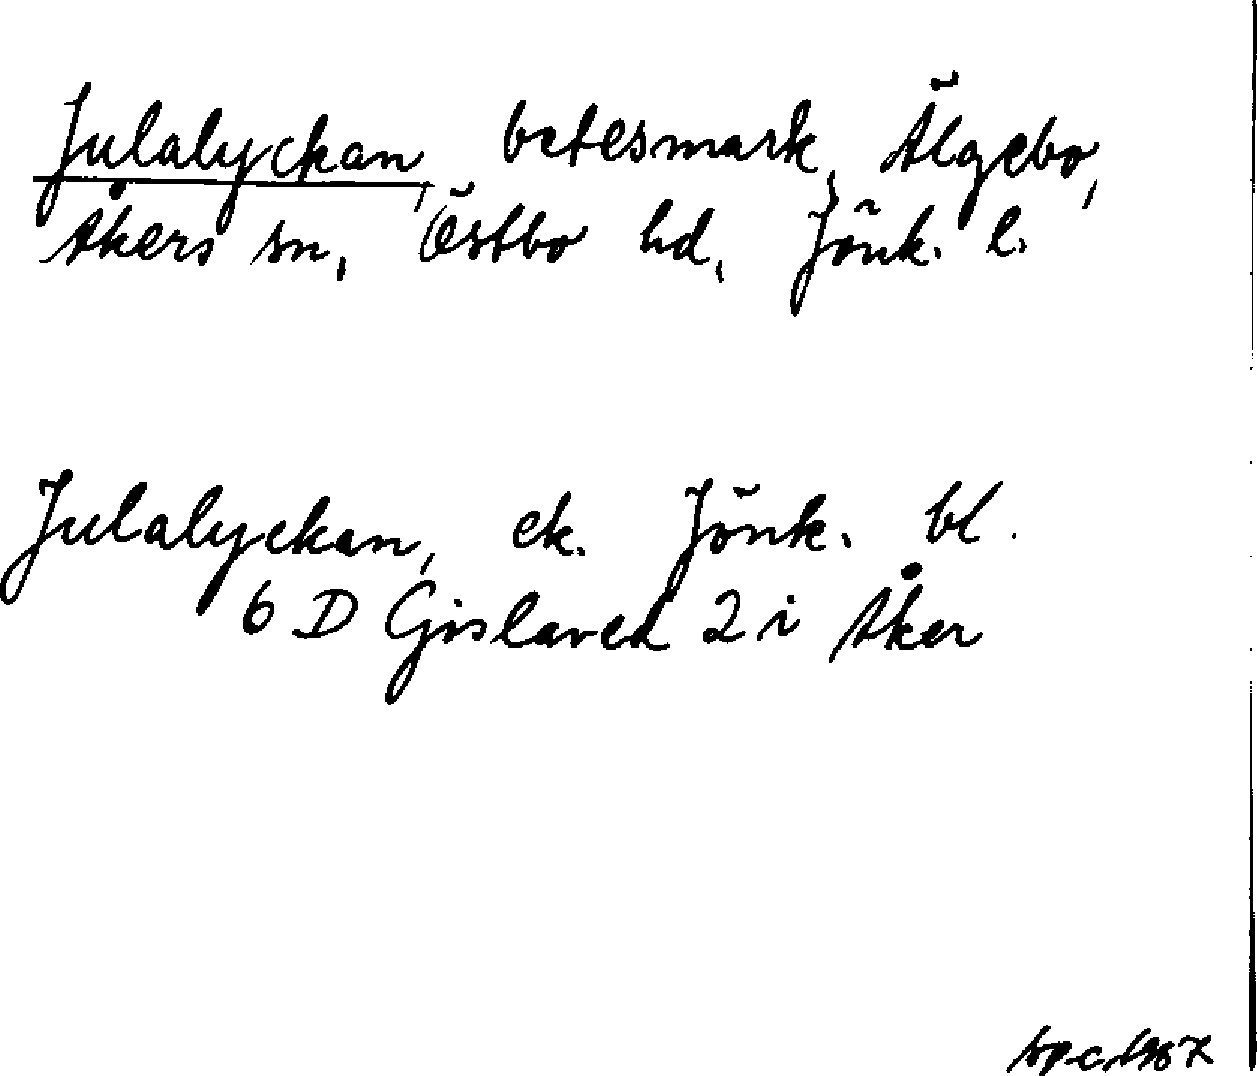 Julalyckan, betesmark, Älgebo,
Åkers sn, Östbo hd, Jönk. l.
Julalyckan, ek. Jönk. bl.
6 D Gislaved 2 i Åker